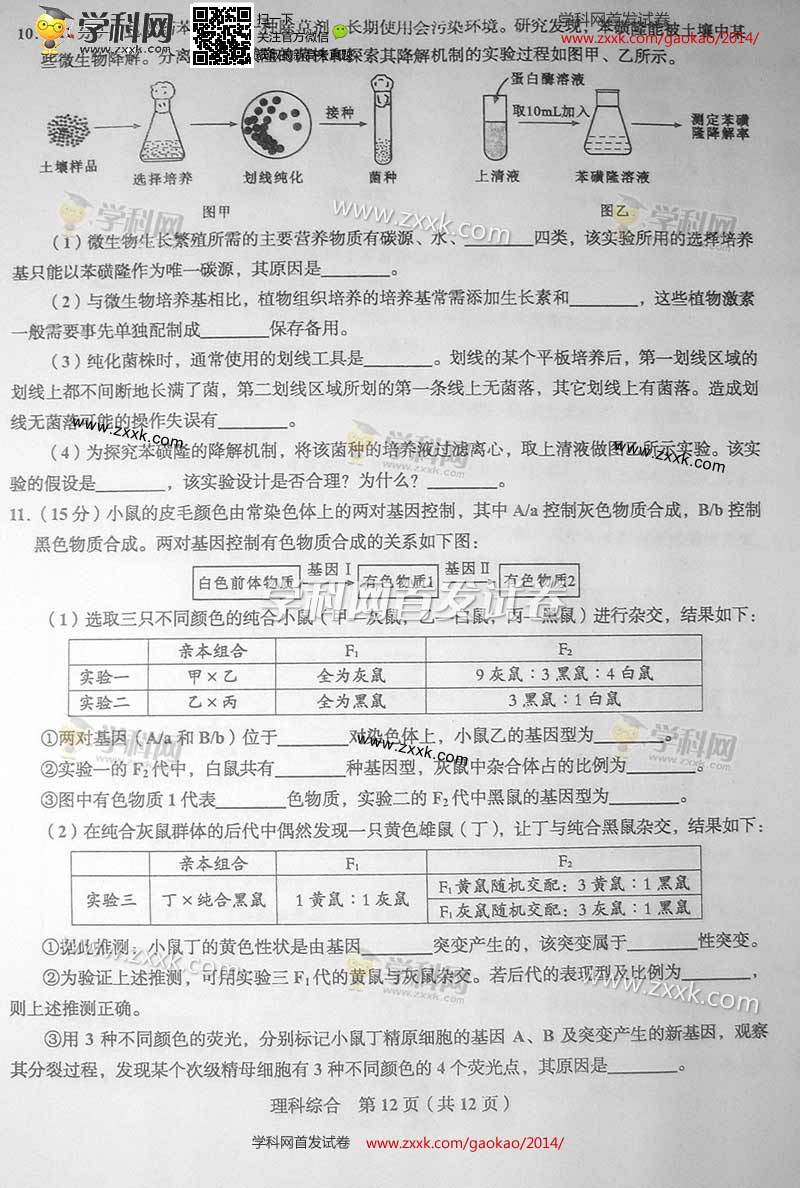 学科网
扫一扫
关注官方微信
学科网首发试卷
www.zxxk.com/gaokao/2014/
10. 除草剂，长期使用会污染环境。研究发现，苯磺隆能被土壤中某
些微生物降解。分离 的菌株和探索其降解机制的实验过程如图甲、乙所示。
土壤样品 选择培养 划线纯化 接种 菌种
蛋白酶溶液
取10mL加入
上清液 苯磺隆溶液
测定苯磺
隆降解率
图甲 图乙
学科网 www.zxxk.com 学科网
（1）微生物生长繁殖所需的主要营养物质有碳源、水、________四类，该实验所用的选择培养
基只能以苯磺隆作为唯一碳源，其原因是________。
（2）与微生物培养基相比，植物组织培养的培养基常需添加生长素和________，这些植物激素
一般需要事先单独配制成________保存备用。
（3）纯化菌株时，通常使用的划线工具是________。划线的某个平板培养后，第一划线区域的
划线上都不间断地长满了菌，第二划线区域所划的第一条线上无菌落，其它划线上有菌落。造成划
线无菌落可能的操作失误有________。
www.zxxk.com 学科网 www.zxxk.com
（4）为探究苯磺隆的降解机制，将该菌种的培养液过滤离心，取上清液做图乙所示实验。该实
验的假设是________，该实验设计是否合理？为什么？________。
11.（15 分）小鼠的皮毛颜色由常染色体上的两对基因控制，其中 A/a 控制灰色物质合成，B/b 控制
黑色物质合成。两对基因控制有色物质合成的关系如下图：
白色前体物质 基因Ⅰ 有色物质1 基因Ⅱ 有色物质2
学科网首发试卷
（1）选取三只不同颜色的纯合小鼠（甲—灰鼠，乙—白鼠，丙—黑鼠）进行杂交，结果如下：
亲本组合 F₁ F₂
实验一 甲×乙 全为灰鼠 9 灰鼠：3 黑鼠：4 白鼠
实验二 乙×丙 全为黑鼠 3 黑鼠：1 白鼠
学科网 www.zxxk.com 学科网
①两对基因（A/a 和 B/b）位于________对染色体上，小鼠乙的基因型为________。
②实验一的 F₂ 代中，白鼠共有________种基因型，灰鼠中杂合体占的比例为________。
③图中有色物质 1 代表________色物质，实验二的 F₂ 代中黑鼠的基因型为________。
（2）在纯合灰鼠群体的后代中偶然发现一只黄色雄鼠（丁），让丁与纯合黑鼠杂交，结果如下：
亲本组合 F₁ F₂
实验三 丁×纯合黑鼠 1 黄鼠：1 灰鼠 F₁黄鼠随机交配：3 黄鼠：1 黑鼠
F₁灰鼠随机交配：3 灰鼠：1 黑鼠
①据此推测：小鼠丁的黄色性状是由基因________突变产生的，该突变属于________性突变。
②为验证上述推测，可用实验三 F₁ 代的黄鼠与灰鼠杂交。若后代的表现型及比例为________，
则上述推测正确。
www.zxxk.com 学科网 www.zxxk.com
③用 3 种不同颜色的荧光，分别标记小鼠丁精原细胞的基因 A、B 及突变产生的新基因，观察
其分裂过程，发现某个次级精母细胞有 3 种不同颜色的 4 个荧光点，其原因是________。
理科综合 第 12 页（共 12 页）
学科网首发试卷 www.zxxk.com/gaokao/2014/